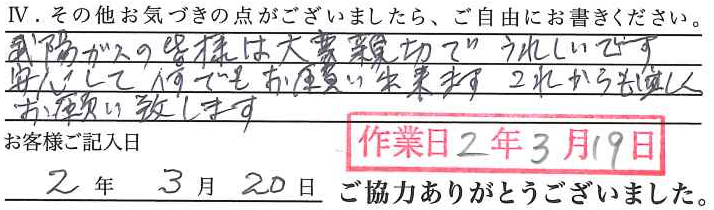 Ⅳ．その他お気づきの点がございましたら、ご自由にお書きください。
武陽ガスの皆様は大変親切で うれしいです
安心して何でもお願い出来ます これからも宜しく
お願い致します
お客様ご記入日
作業日2年3月19日
2年 3月20日 ご協力ありがとうございました。